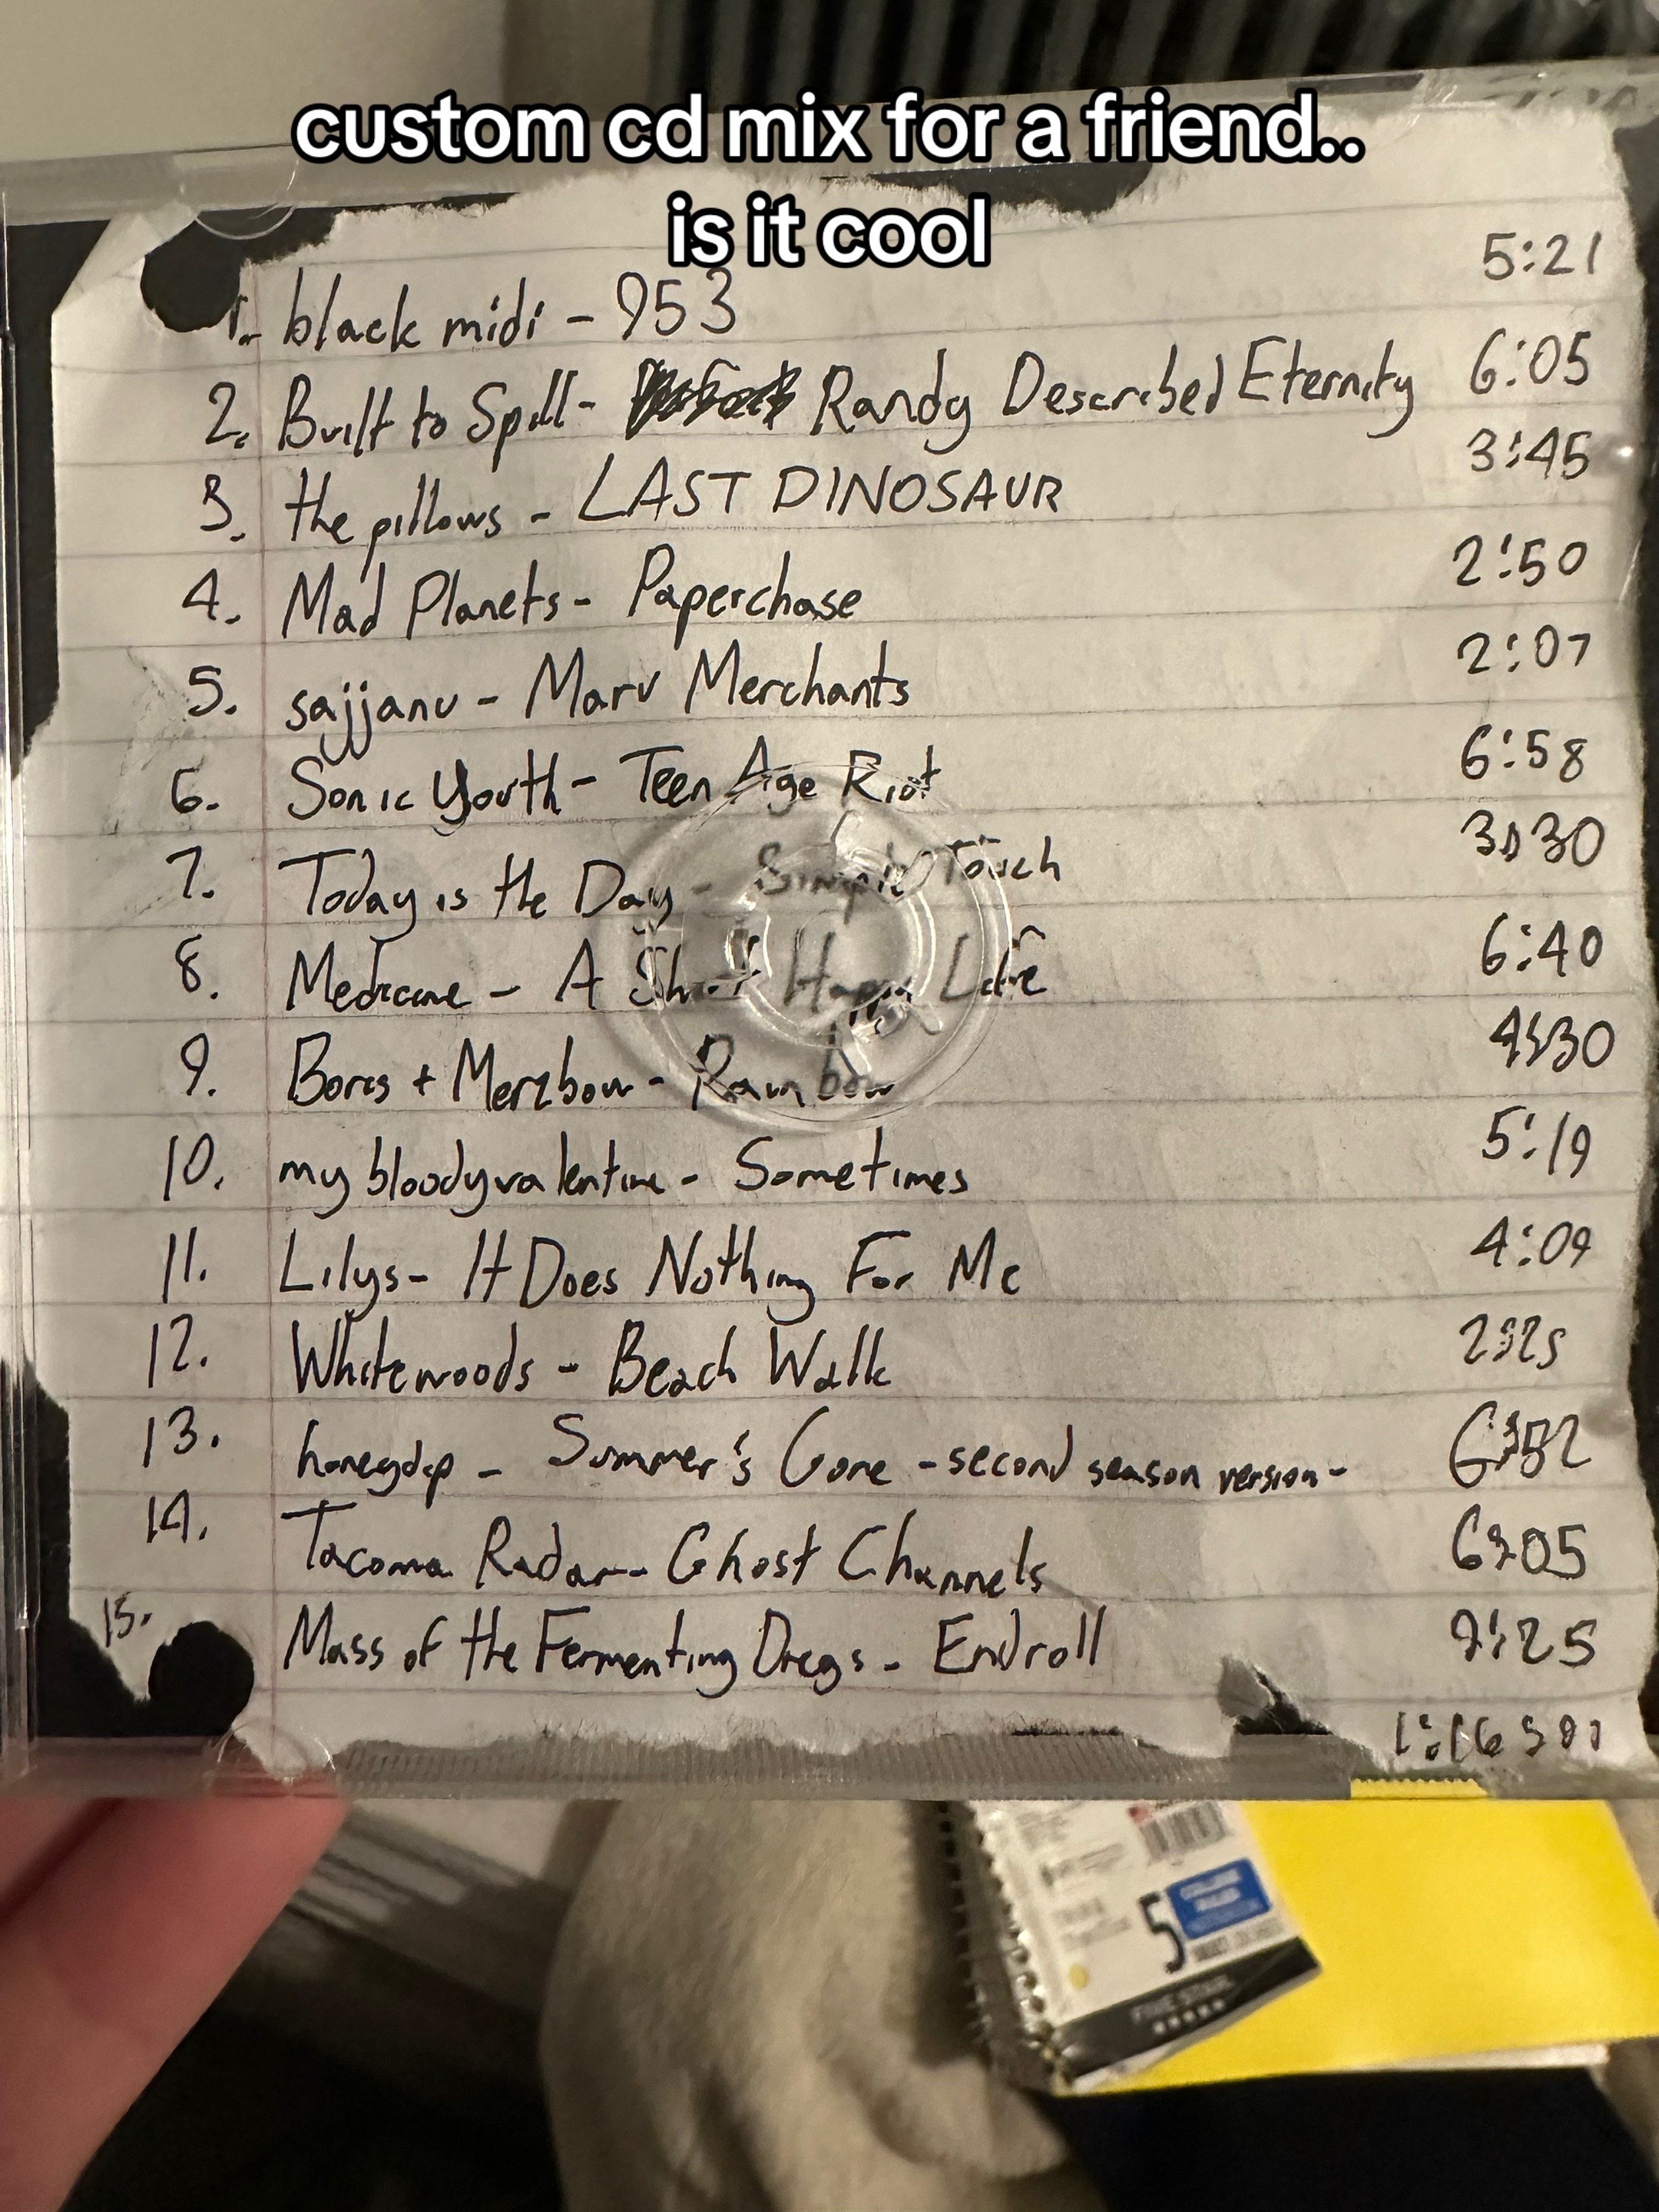 custom cd mix for a friend..
is it cool
1. black midi - 953 5:21
2. Built to Spill - Randy Described Eternity 6:05
3. the pillows - LAST DINOSAUR 3:45
4. Mad Planets - Paperchase 2:50
5. sajjanu - Marv Merchants 2:07
6. Sonic Youth - Teen Age Riot 6:58
7. Today is the Day - Simple Touch 3:30
8. Medicine - A Short Happy Life 6:40
9. Boris + Merzbow - Rainbow 4:30
10. my bloody valentine - Sometimes 5:19
11. Lilys - It Does Nothing For Me 4:09
12. Whitewoods - Beach Walk 2:25
13. honeydip - Summer's Gone - second season version - 6:52
14. Tacoma Radar - Ghost Channels 6:05
15. Mass of the Fermenting Dregs - Endroll 9:25
5
FIVE STAR